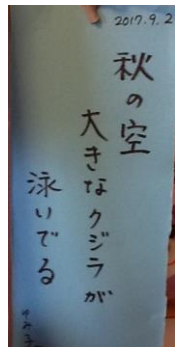 2017.9.2
秋の空
大きなクジラが
泳いでる
ゆみ子